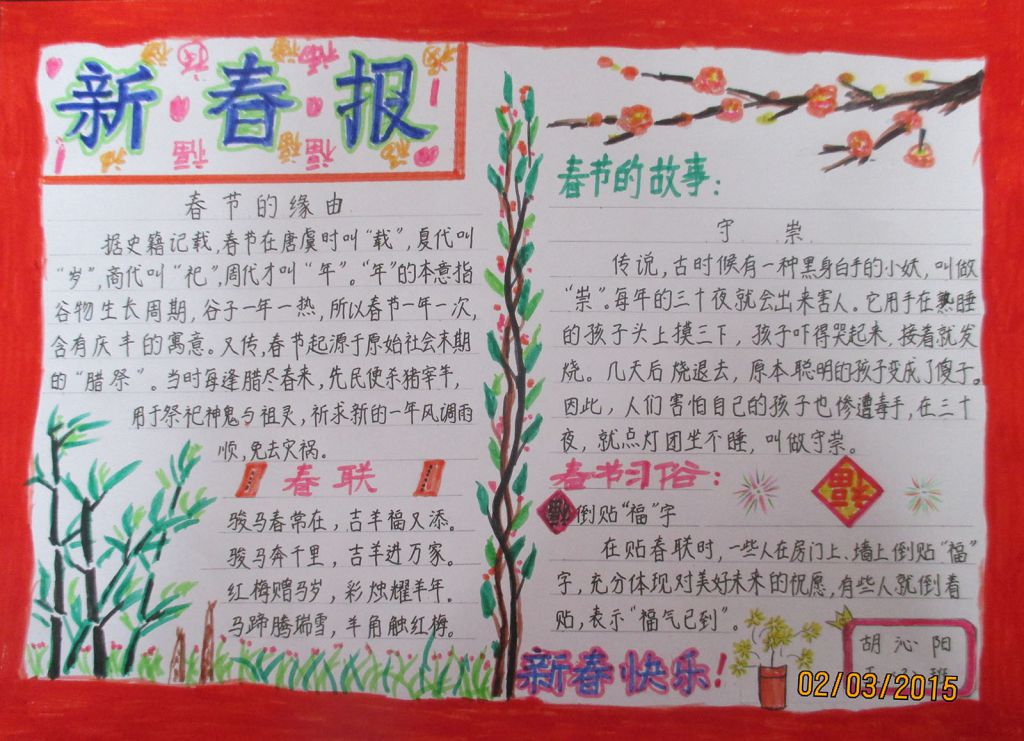 新春报
春节的缘由
据史籍记载,春节在唐虞时叫“载”,夏代叫
“岁”,商代叫“祀”,周代才叫“年”。“年”的本意指
谷物生长周期,谷子一年一热,所以春节一年一次,
含有庆丰的寓意。又传,春节起源于原始社会末期
的“腊祭”。当时每逢腊尽春来,先民便杀猪宰牛,
用于祭祀神鬼与祖灵,祈求新的一年风调雨
顺,免去灾祸。
春联
骏马春常在,吉羊福又添。
骏马奔千里,吉羊进万家。
红梅赠马岁,彩烛耀羊年。
马蹄腾瑞雪,羊角触红梅。
春节的故事:
守祟
传说,古时候有一种黑身白手的小妖,叫做
“祟”。每年的三十夜就会出来害人。它用手在熟睡
的孩子头上摸三下,孩子吓得哭起来,接着就发
烧。几天后烧退去,原本聪明的孩子变成了傻子。
因此,人们害怕自己的孩子也惨遭毒手,在三十
夜,就点灯团坐不睡,叫做守祟。
春节习俗:
福
倒贴“福”字
在贴春联时,一些人在房门上、墙上倒贴“福”
字,充分体现对美好未来的祝愿,有些人就倒着
贴,表示“福气已到”。
新春快乐!
胡沁阳
02/03/2015